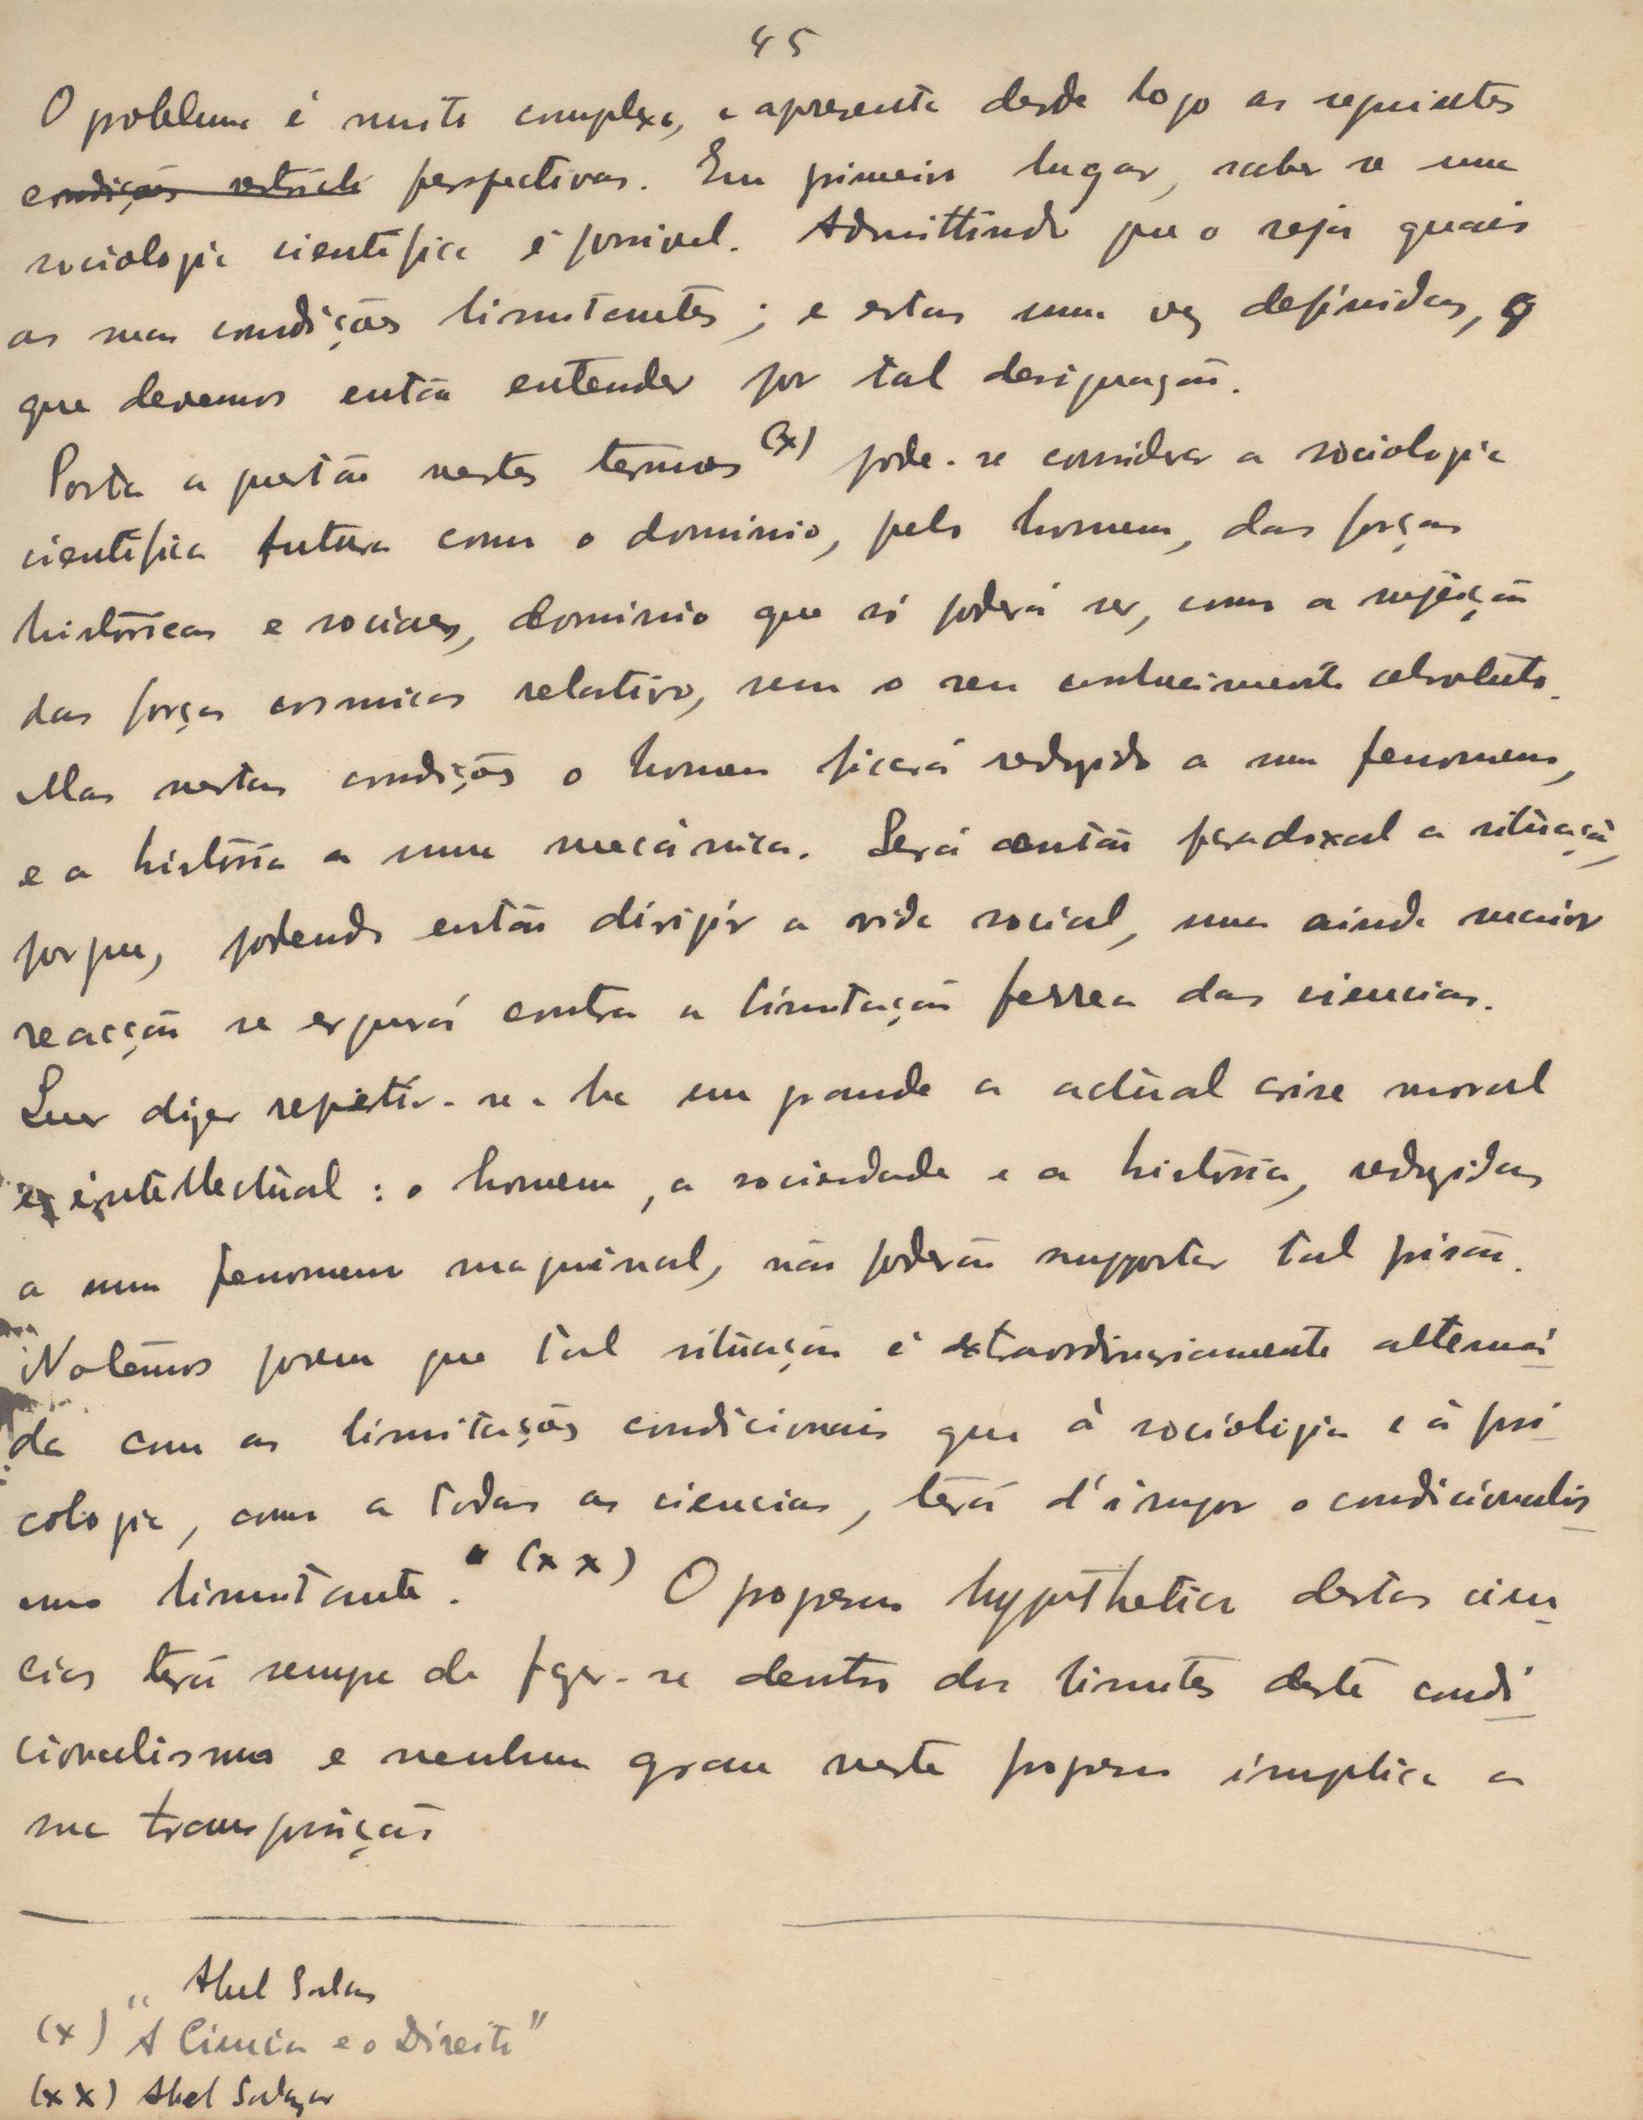 45
O problema é muito complexo, e apresenta desde logo as seguintes
condições perspectivas. Em primeiro lugar, saber se uma
sociologia cientifica é possivel. Admittindo que o seja quais
as suas condições limitantes; e estas uma vez definidas, o
que devemos então entender por tal designação.
Posta a questão nestes termos (x) pode-se considerar a sociologia
cientifica futura como o dominio, pelo homem, das forças
históricas e sociaes, dominio que só poderá ser, como a sujeição
das forças cosmicas relativo, sem o seu conhecimento absoluto.
Mas nestas condições o homem ficará reduzido a um fenomeno,
e a história a uma mecánica. Será então paradoxal a situação,
porque, podendo então dirigir a vida social, uma ainda maior
reacção se erguerá contra a limitação ferrea das ciencias.
Quer dizer repetir-se-ha em grande a actual crise moral
e intellectual: o homem, a sociedade e a história, reduzidas
a um fenomeno maquinal, não poderão supportar tal prisão.
Notêmos porem que tal situação é extraordinariamente attenuá
da com as limitações condicionais que á sociologia e á psi
cologia, como a todas as ciencias, terá d'impor o condicionalis
mo limitante. (xx) O progresso hypothetico destas cien
cias terá sempre de fazer-se dentro dos limites deste condi
cionalismo e nenhum grau neste progresso implica a
sua transposição
Abel Salazar
(x) "A Ciencia e o Direito"
(xx) Abel Salazar